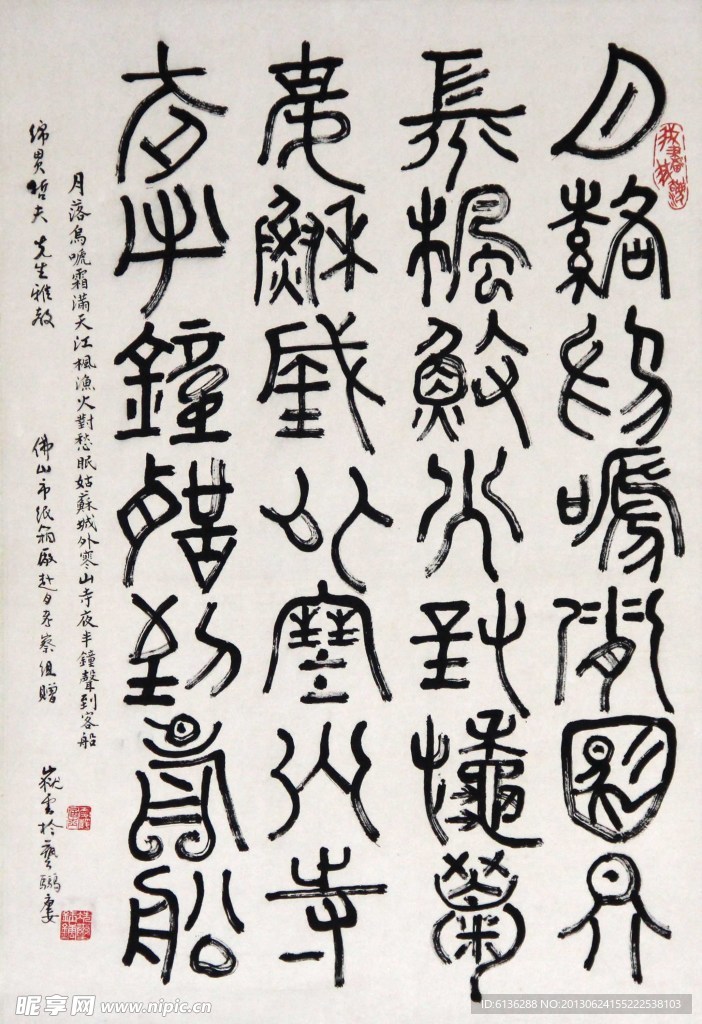 月落烏嗁霜滿天
江楓漁火對愁眠
姑蘇城外寒山寺
夜半鐘聲到客船
月落烏嗁霜滿天江楓漁火對愁眠姑蘇城外寒山寺夜半鐘聲到客船
綿貫哲夫先生雅教 佛山市紙箱廠赴日考察組贈 嶽雲於藝鷗廔
昵享网 www.nipic.cn
ID:6136288 NO:20130624155222538103